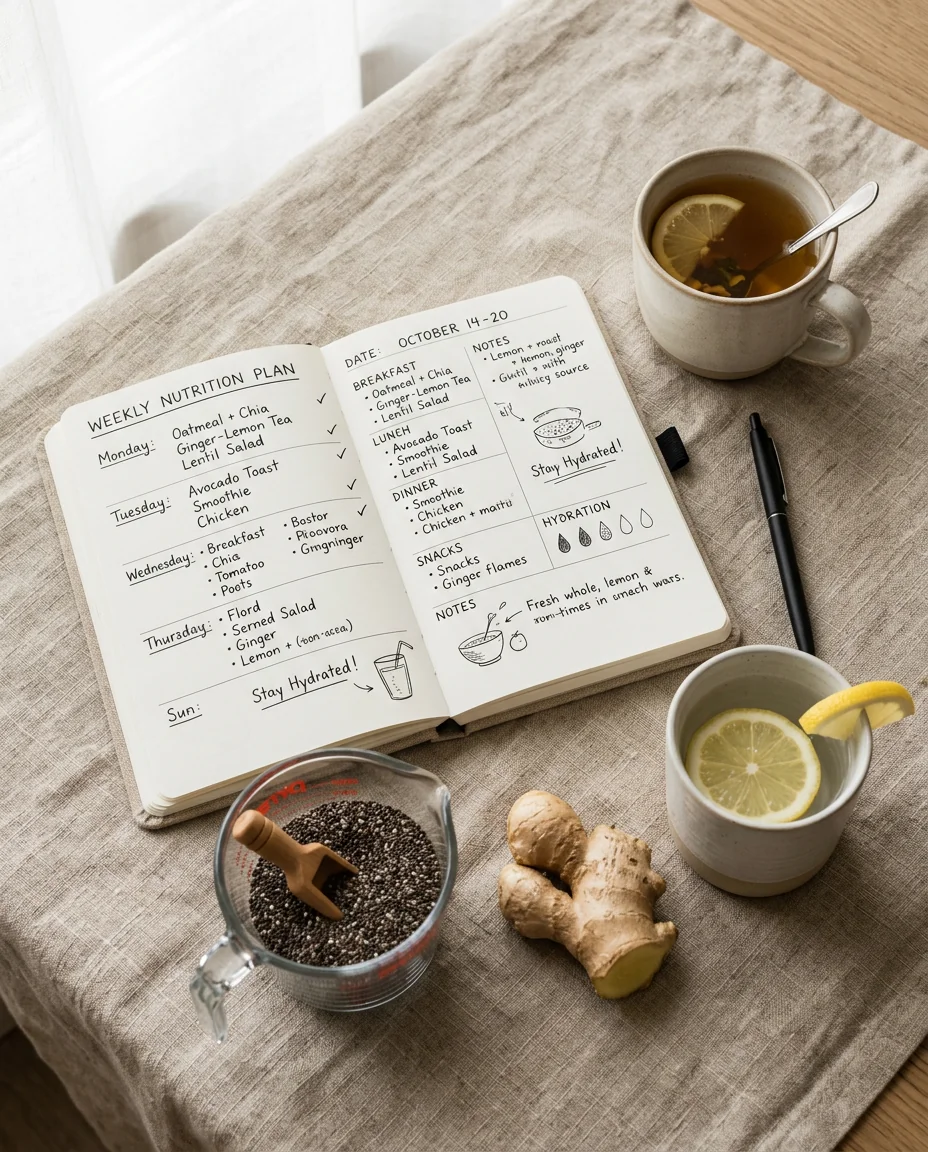 WEEKLY NUTRITION PLAN
Monday:
Oatmeal + Chia
Ginger-Lemon Tea
Lentil Salad
Tuesday:
Avocado Toast
Smoothie
Chicken
Wednesday:
• Breakfast
• Chia
• Tomatoo
• Poots
• Bastor
• Pioovora
• Gmgninger
Thursday:
• Flord
• Serned Salad
• Ginger
• Lemon +
Sun:
Stay Hydrated!
DATE: OCTOBER 14-20
BREAKFAST
• Oatmeal + Chia
• Ginger-Lemon Tea
• Lentil Salad
LUNCH
• Avocado Toast
• Smoothie
• Lentil Salad
DINNER
• Smoothie
• Chicken
• Chicken +
SNACKS
• Snacks
• Ginger flames
NOTES
• Lemon + roast
+ lemon, ginger
source
Stay Hydrated!
HYDRATION
NOTES
Fresh whole, lemon &
-times in smach wars.